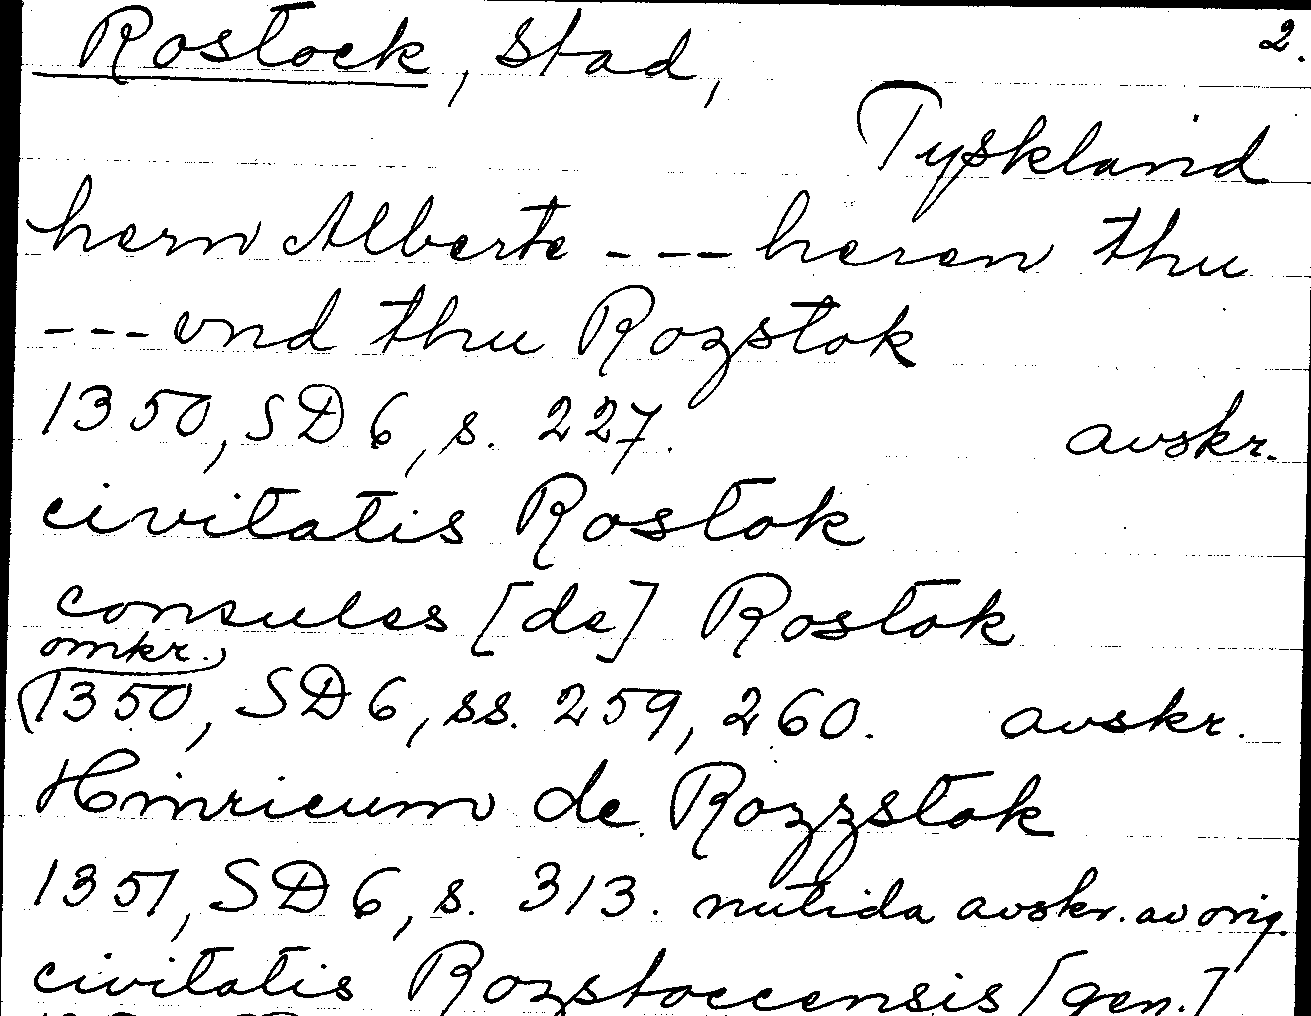 Rostock, stad, 2.
Tyskland
hern Alberte --- heren thu
--- vnd thu Rozstok
1350, SD 6, s. 227. avskr.
civitatis Rostok
consules [de] Rostok
omkr.
1350, SD 6, ss. 259, 260. avskr.
Hinricum de Rozzstok
1351, SD 6, s. 313. nutida avskr. av orig.
civitatis Rozstoccensis [gen.]